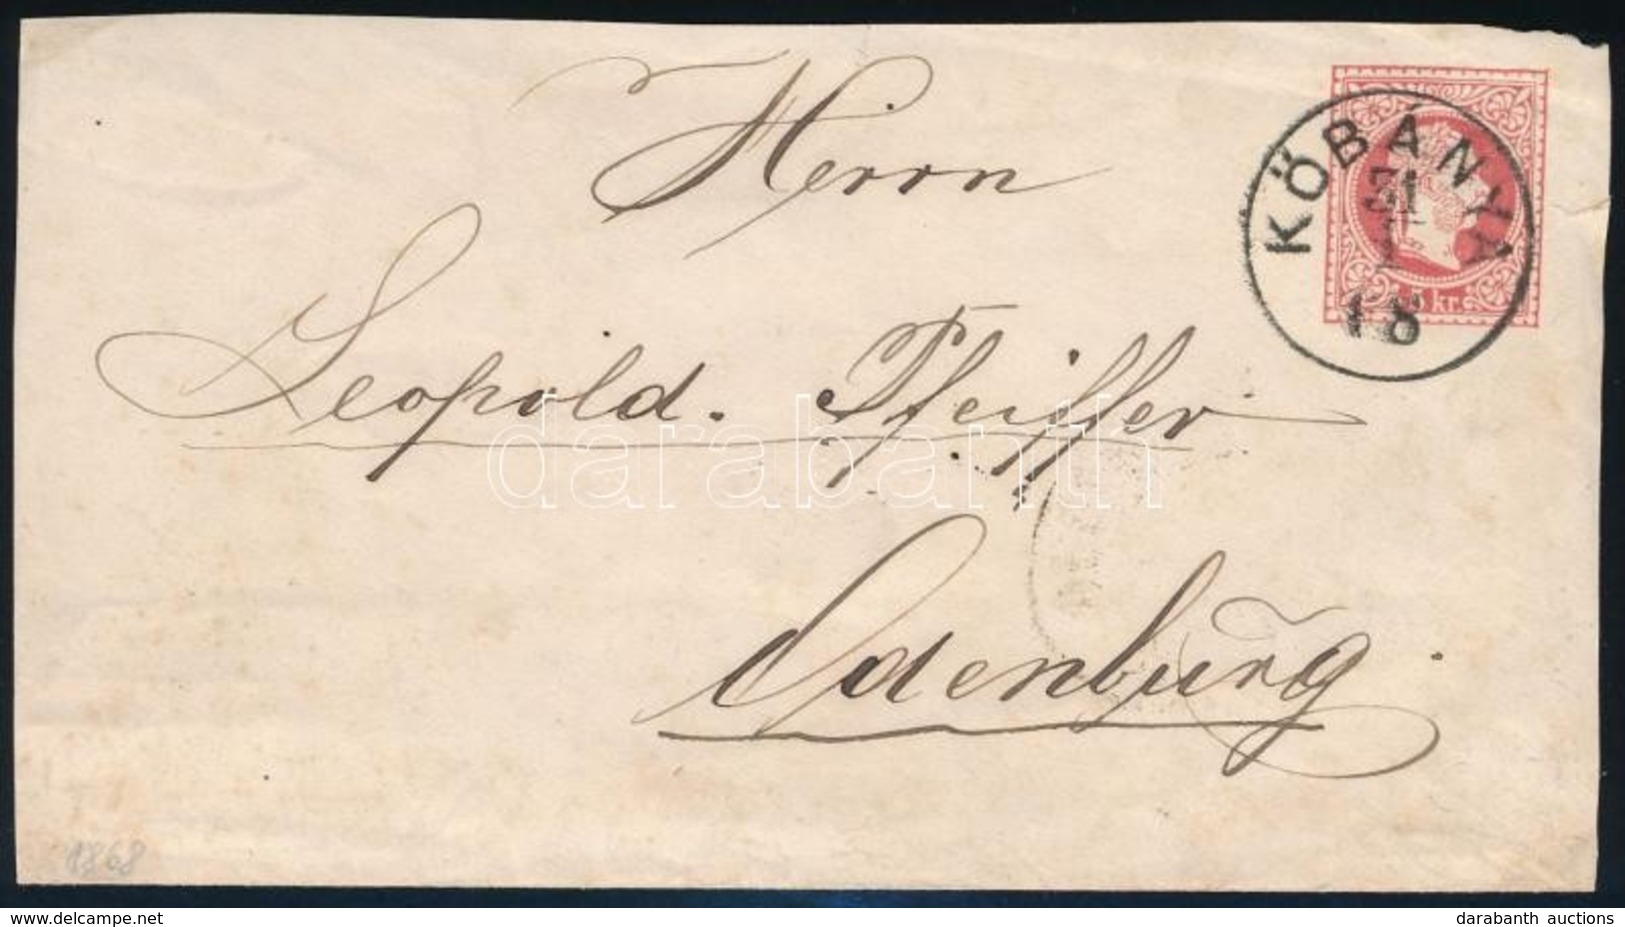 Herrn
KŐBÁNYA
31
5 kr.
Leopold. Pfeiffer
darabanth
Odenburg
1868
www.delcampe.net
darabanth auctions